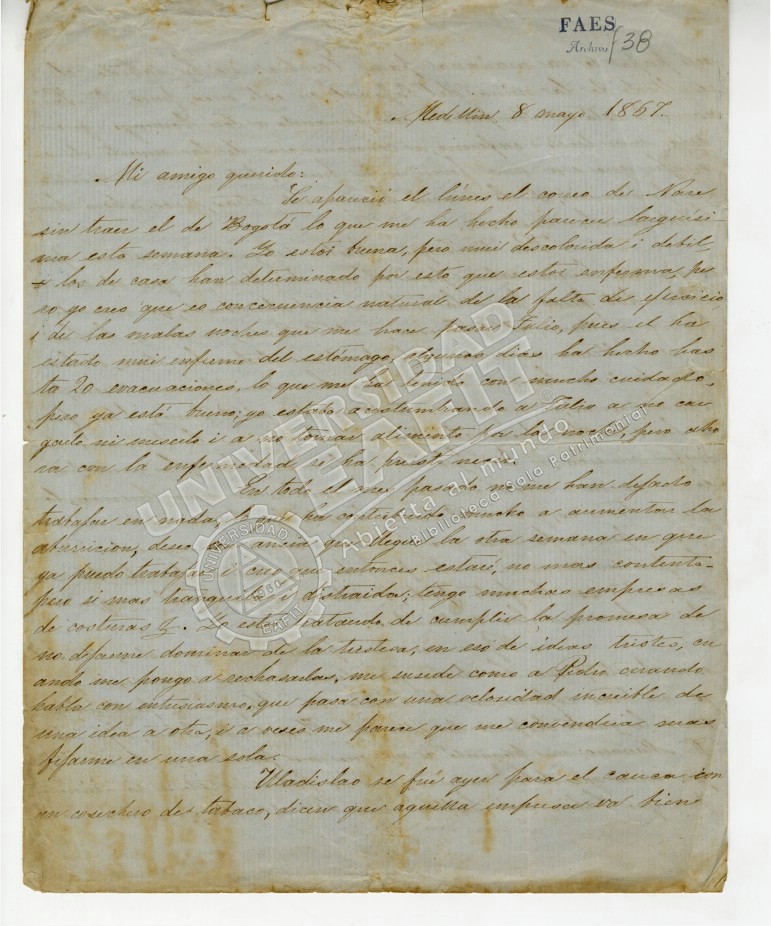 FAES
Archivo / 38
Medellin 8 mayo 1857.
Mi amigo querido:
Se apareció el lúnes el correo de Nare
sin traer el de Bogotá lo que me ha hecho parecer larguisi
ma esta semana. Yo estoi buena, pero mui descolorida i debil,
i los de casa han determinado por esto que estoi enferma, pe
ro yo creo que es concecuencia natural de la falta de ejercicio
i de las malas noches que me hace pasar Tulio, pues el ha
estado mui enfermo del estómago, algunos dias ha hecho has
ta 20 evacuaciones, lo que me ha tenido con mucho cuidado,
pero ya está bueno; yo estaba acostumbrando a Tulio a no
ni mecerlo i a no tomar alimento por la noche, pero aho
ra con la enfermedad se ha puesto necio.
En todo el mes pasado no me han dejado
trabajar en nada, lo que ha contribuido mucho a aumentar la
aburricion, deseo con ancia que llegue la otra semana en que
ya puedo trabajar i creo que entonces estaré, no mas contenta
pero si mas tranquila i distraida; tengo muchas empresas
de costuras &. Yo estoi tratando de cumplir la promesa de
no dejarme dominar de la tristesa, en eso de ideas tristes, cu
ando me pongo a rechasarlas, me susede como a Pedro cuando
habla con entusiasmo, que pasa con una velosidad increible de
una idea a otra, i a veses me parece que me convendria mas
fijarme en una sola.
Uladislao se fué ayer para el cauca con
un cosechero de tabaco, dicen que aquella empresa va bien
UNIVERSIDAD
EAFIT
Abierta al mundo
Biblioteca Sala Patrimonial
UNIVERSIDAD
1960
EAFIT